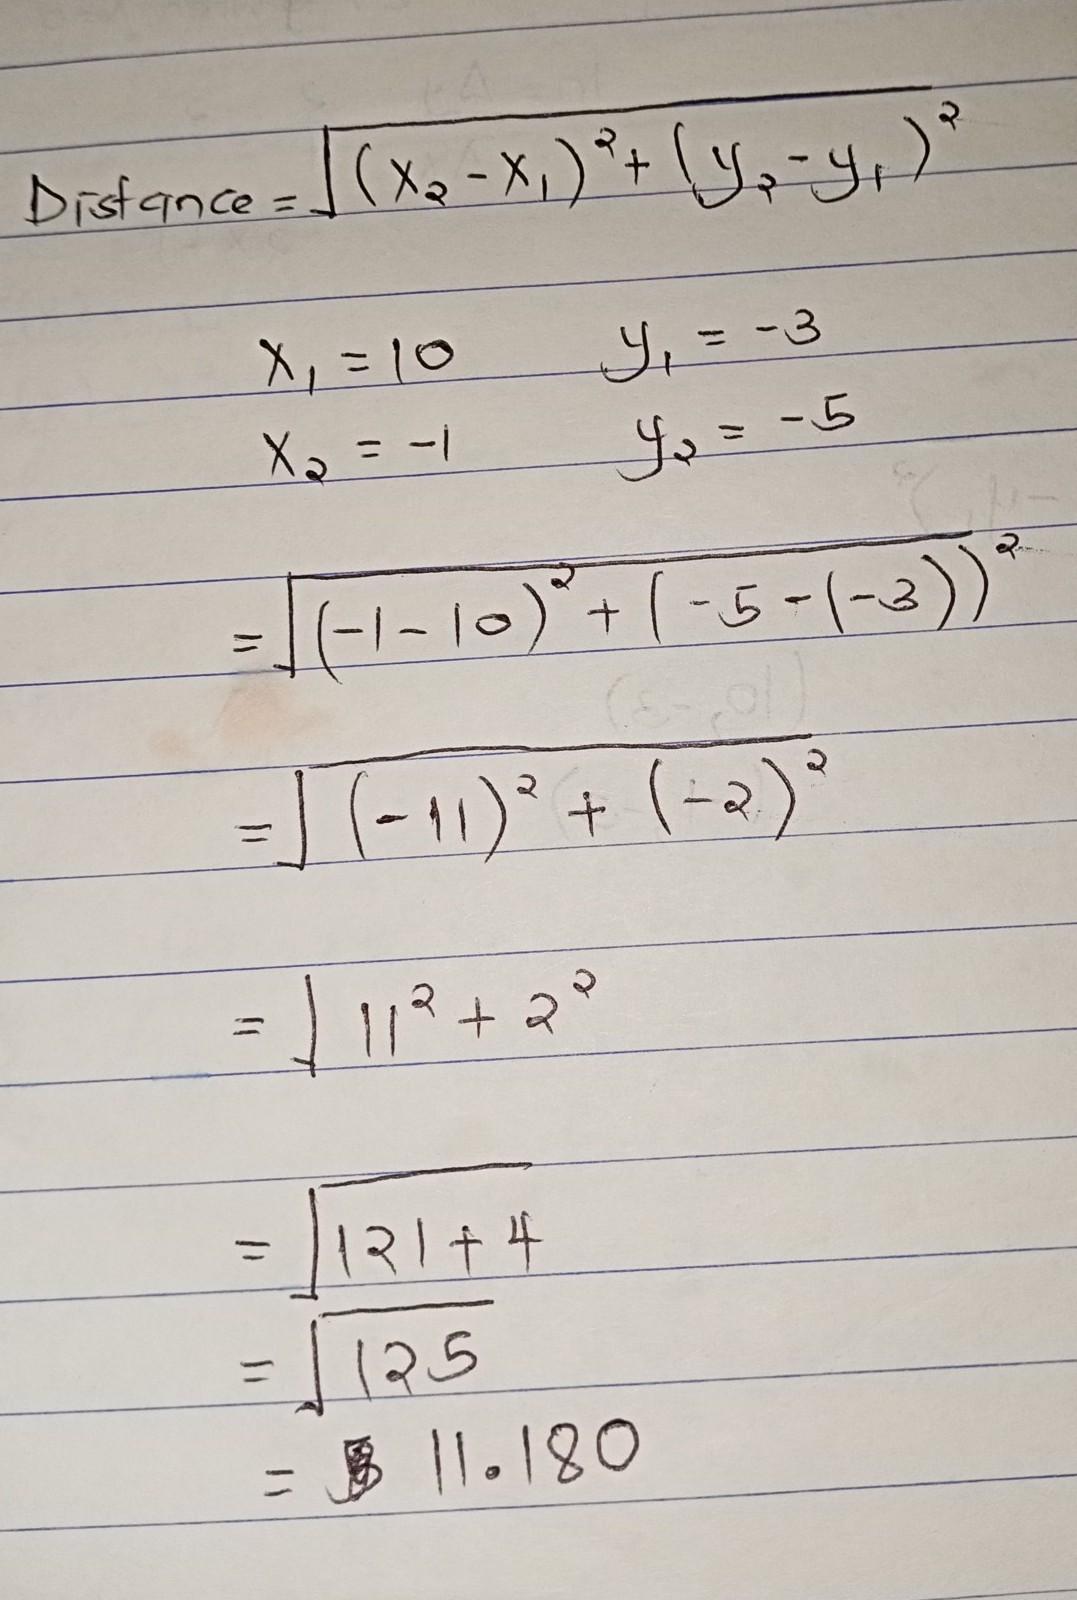 Distance = √(x₂ - x₁)² + (y₂ - y₁)²
x₁ = 10 y₁ = -3
x₂ = -1 y₂ = -5
= √(-1 - 10)² + (-5 - (-3))²
= √(-11)² + (-2)²
= √11² + 2²
= √121 + 4
= √125
= 11.180